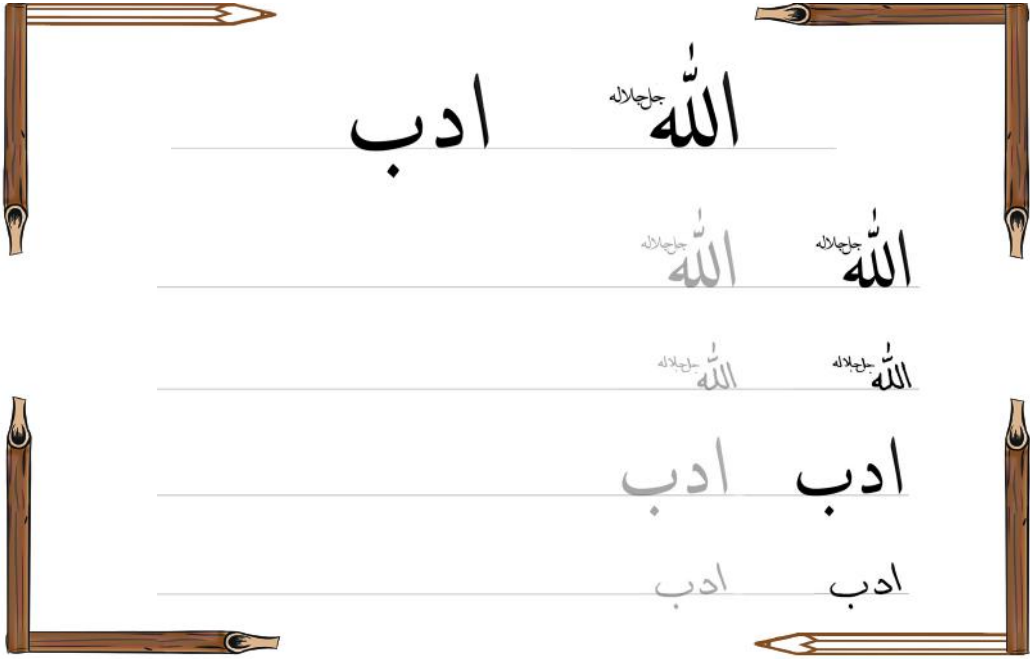 الله جل جلاله ادب
الله جل جلاله الله جل جلاله
الله جل جلاله الله جل جلاله
ادب ادب
ادب ادب